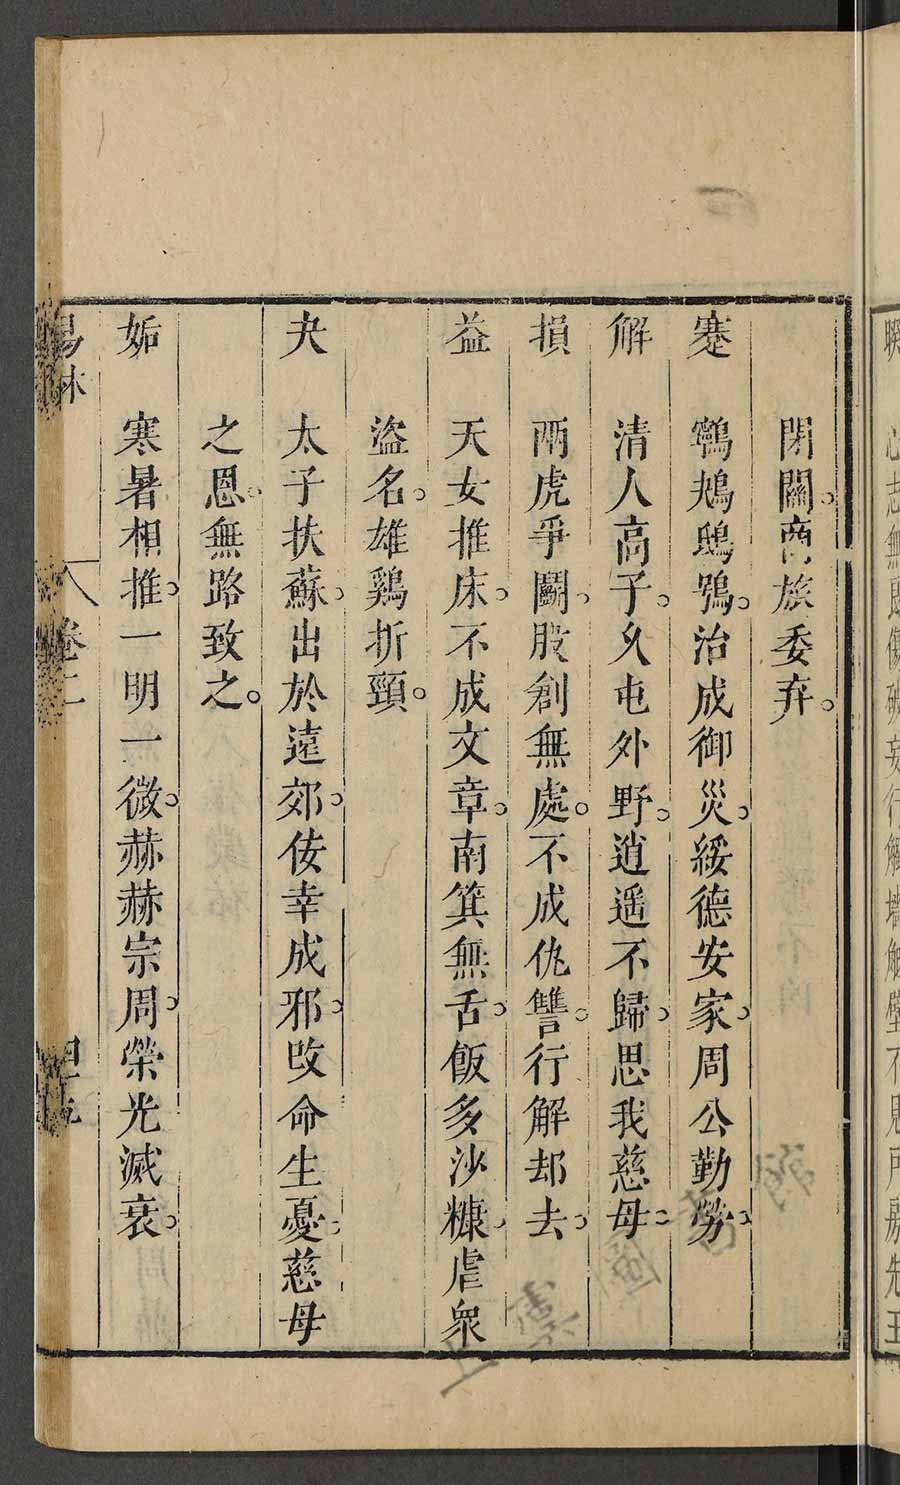 閉關商旅委弃
蹇 鸋鴂鴟鴞治成御災綏德安家周公勤勞
解 清人高子久屯外野逍遥不歸思我慈母
損 兩虎爭鬭股創無處不成仇讐行解却去
益 天女推床不成文章南箕無舌飯多沙糠虐衆
盜名雄鷄折頸
夬 太子扶蘇出於遠郊佞幸成邪改命生憂慈母
之恩無路致之
姤 寒暑相推一明一微赫赫宗周榮光滅衰
易林 卷二 四十五